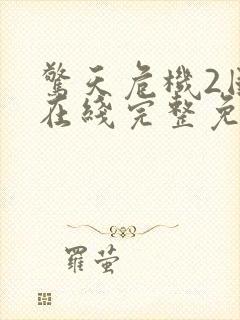 驚天危機2国
在綫完整免
羅茧